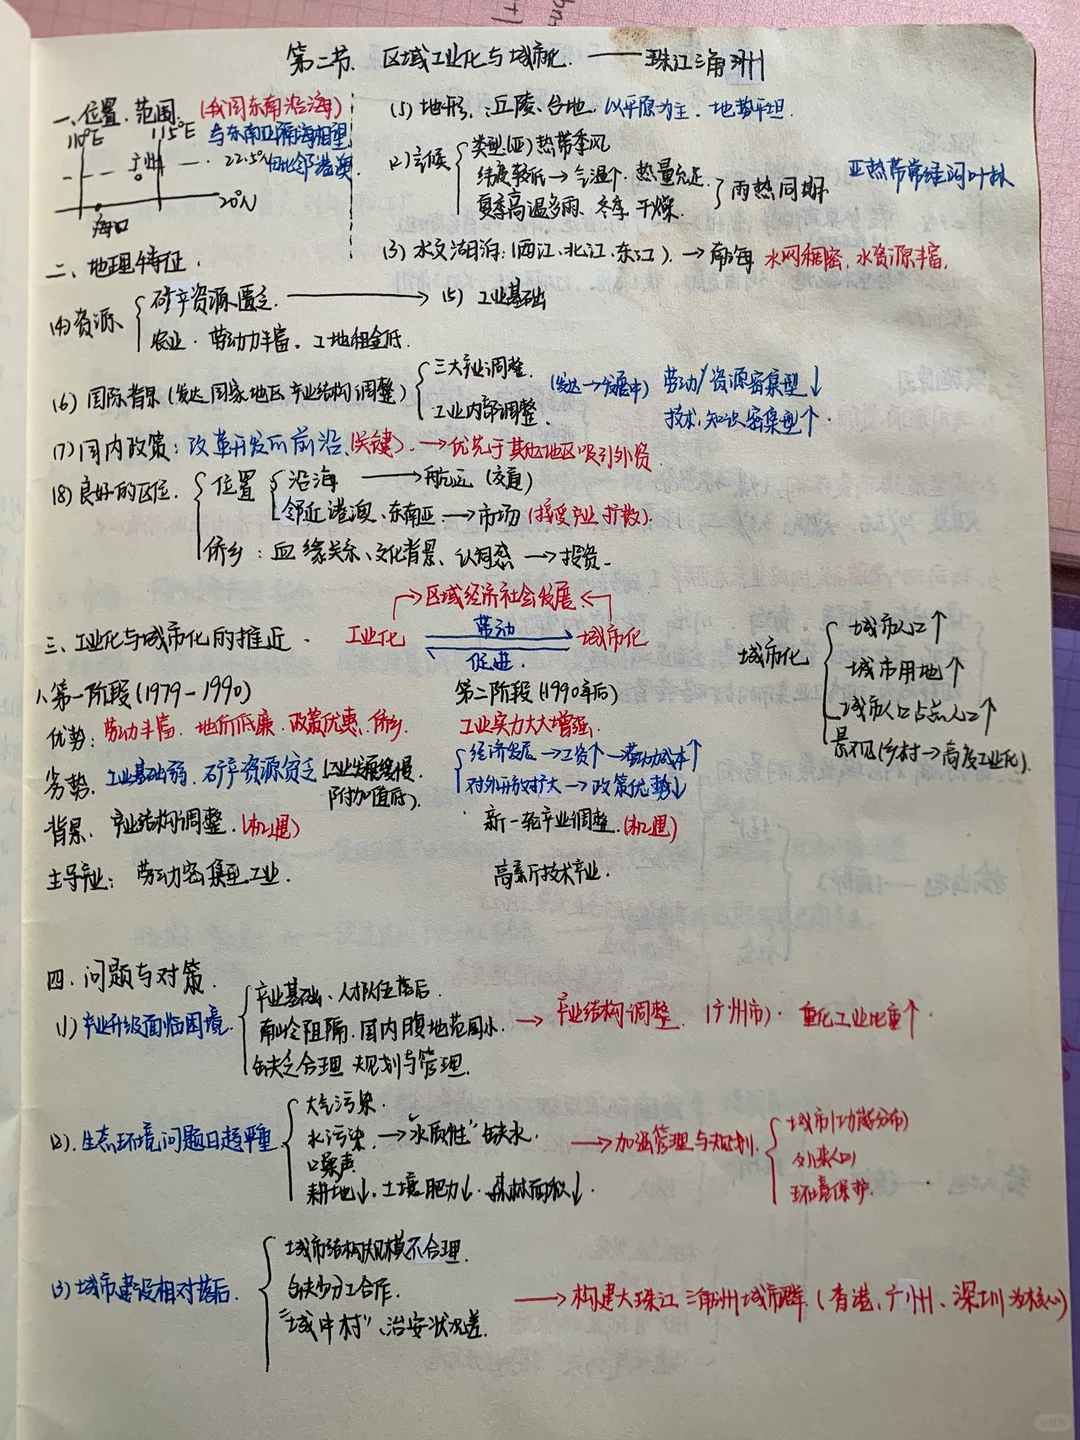 第二节. 区域工业化与城市化. ——珠江三角洲
一、位置、范围. (我国东南沿海)
110°E 115°E 与东南亚隔海相望
广州 22.5°N 毗邻港澳.
20°N
海口
(1) 地形: 丘陵、台地. 以平原为主. 地势平坦.
(2) 气候 类型(亚)热带季风
纬度较低→气温个. 热量充足. 雨热同期. 亚热带常绿阔叶林
夏季高温多雨、冬季干燥.
(3) 水文湖泊: (西江、北江、东江). → 南海 水网稠密, 水资源丰富.
二、地理特征.
(4) 资源 矿产资源匮乏. → (5) 工业基础
农业. 劳动力丰富. 工地租金低.
(6) 国际背景 (发达国家地区产业结构调整) 三大产业调整. (发达→发展中) 劳动/资源密集型↓
工业内部调整. 技术, 知识密集型↑.
(7) 国内政策: 改革开发的前沿.(关键). → 优先于其他地区吸引外资.
(8) 良好的区位. 位置 沿海 → 航运 (交通)
邻近港澳、东南亚. → 市场 (接受产业扩散).
侨乡: 血缘关系、文化背景、认同感 → 投资.
区域经济社会发展.
三、工业化与城市化的推进. 工业化 带动 城市化
促进.
城市化 城市人口↑
城市用地↑
城市人口占总人口↑
景观(乡村→高度工业化).
1、第一阶段(1979-1990) 第二阶段(1990年后)
优势: 劳动丰富. 地价低廉. 政策优惠. 侨乡. 工业实力大大增强.
劣势. 工业基础弱. 矿产资源贫乏 (工业发展缓慢. 附加值低). 经济发展→工资↑→劳动力成本↑
对外开放扩大→政策优势↓
背景. 产业结构调整. (机遇) 新一轮产业调整. (机遇)
主导产业: 劳动密集型工业. 高新技术产业.
四. 问题与对策.
(1) 产业升级面临困境. 产业基础、人才队伍落后.
南岭阻隔. 国内腹地范围小. → 产业结构调整. (广州市). 重化工业比重↑.
缺乏合理规划与管理.
(2). 生态环境问题日趋严重. 大气污染.
水污染. → "水质性"缺水. → 加强管理与规划. 城市(功能分布)
噪声 外来人口
耕地↓. 土壤肥力↓. 森林面积↓. 环境保护.
(3) 城市建设相对落后. 城市结构规模不合理.
缺少分工合作. → 构建大珠江三角洲城市群. (香港、广州、深圳为核心)
"城中村"、治安状况差.